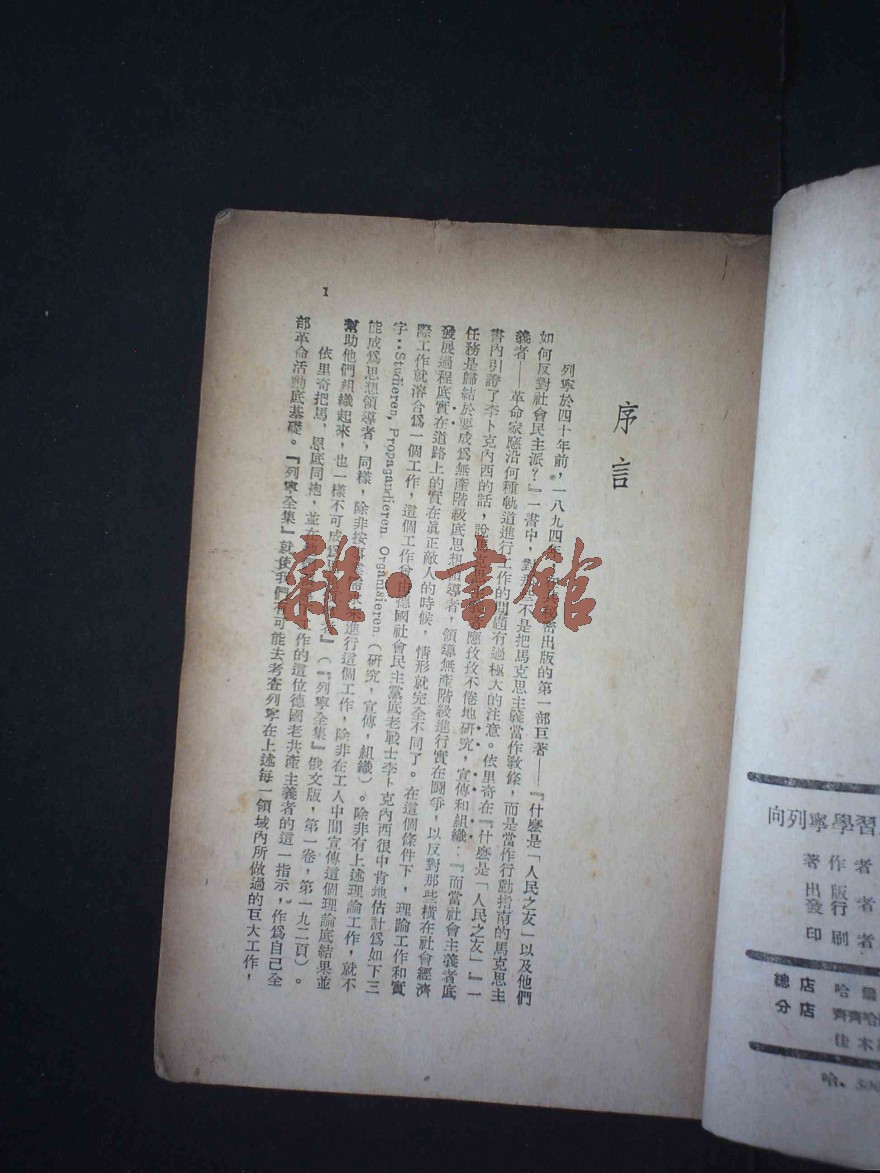 序言
列寧於四十年前，一八九四年，出版的第一部巨著——『什麼是「人民之友」以及他們
如何反對社會民主派？』一書中，對不是把馬克思主義當作敎條，而是當作行動指南的馬克思主
義者——革命家應沿何種軌道進行工作的問題有過極大的注意。依里奇在『什麼是「人民之友」』一
書內引證了李卜克內西的話，說應孜孜不倦地研究，宣傳和組織：『而當社會主義者底
任務是歸結於要成爲無產階級底思想領導者，領導無產階級進行實在鬪爭，以反對那些橫在社會經濟
發展過程底實在道路上的實在眞正敵人的時候，情形就完全不同了。在這個條件下，理論工作和實
際工作就溶合爲一個工作，這個工作德國社會民主黨底老戰士李卜克內西很中肯地估計爲如下三
字：Studieren, Propagandieren, Organisieren.（研究，宣傳，組織）。除非有上述理論工作，就不
能成爲思想領導者，同樣，除非按進行這個工作，除非在工人中間宣傳這個理論底結果並
幫助他們組織起來，也一樣不可成爲』（『列寧全集』俄文版，第一卷，第一九二頁）。
依里奇把馬，恩底同抱，並在作的這位德國老共產主義者的這一指示，作爲自己全
部革命活動底基礎。『列寧全集』就使我們有可能去考查列寧在上述每一領域內所做過的巨大工作，
1
雜·書館
向列寧學習
著作者
出版
發行者
印刷者
總店 哈爾
分店 齊齊哈
佳木
哈.